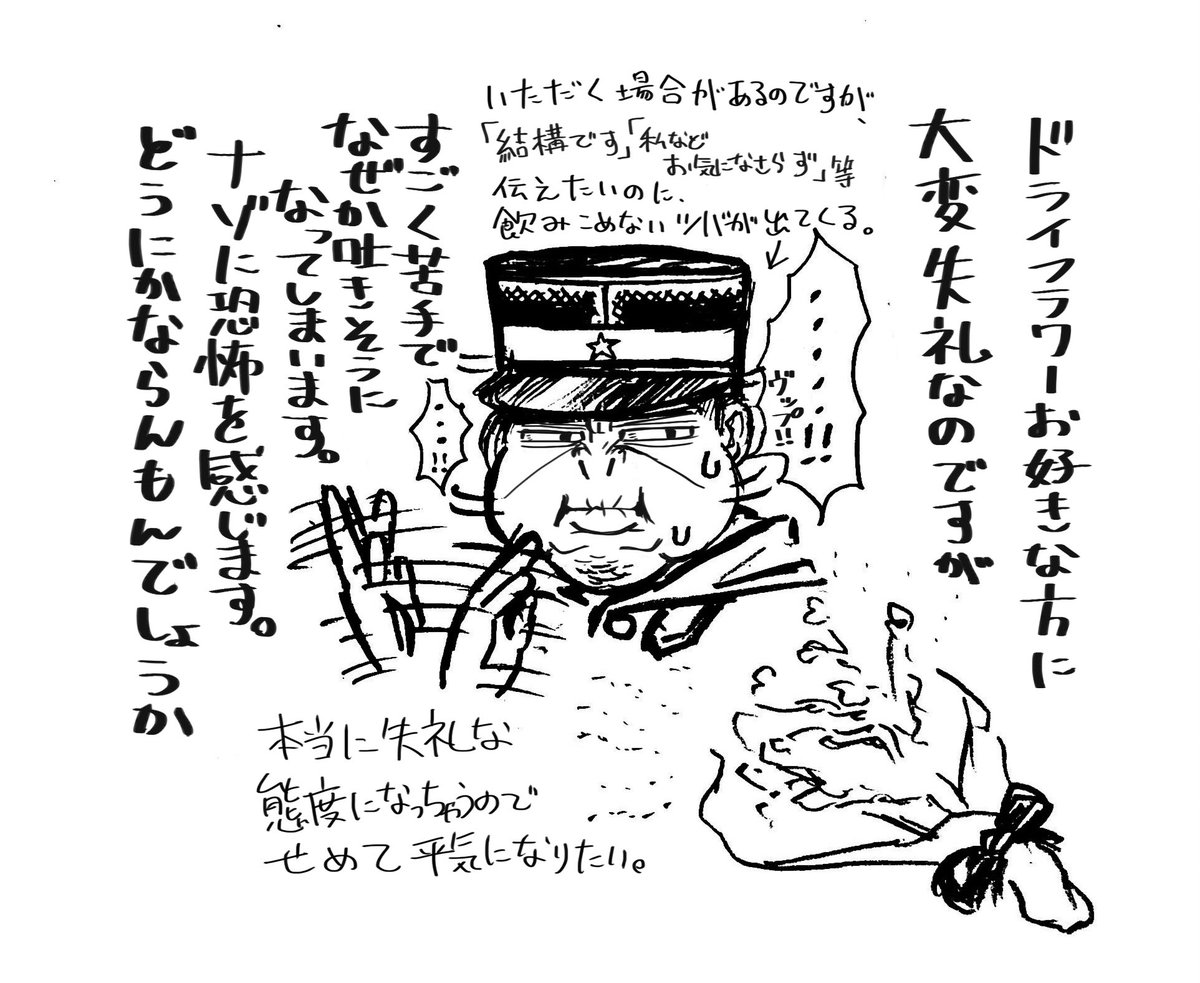 ドライフラワーお好きな方に
大変失礼なのですが
いただく場合があるのですが、
「結構です」「私など
お気になさらず」等
伝えたいのに、
飲みこめないツバが出てくる。
・・・・・・!!
ヴップ!!
・・・・!!
すごく苦手で
なぜか吐きそうに
なってしまいます。
ナゾに恐怖を感じます。
どうにかならんもんでしょうか
本当に失礼な
態度になっちゃうので
せめて平気になりたい。